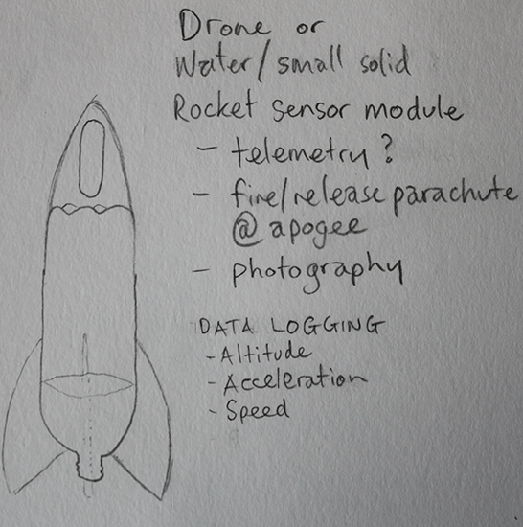 Drone or
Water/small solid
Rocket sensor module
- telemetry?
- fire/release parachute
@ apogee
- photography
DATA LOGGING
- Altitude
- Acceleration
- Speed